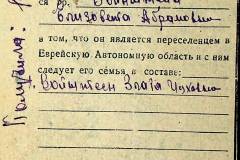 ся гр. Войнштейн
Елизовета Абрамовна
в том, что он является переселенцем в
Еврейскую Автономную область и с ним
следует его семья в составе:
Войнштеен Злата